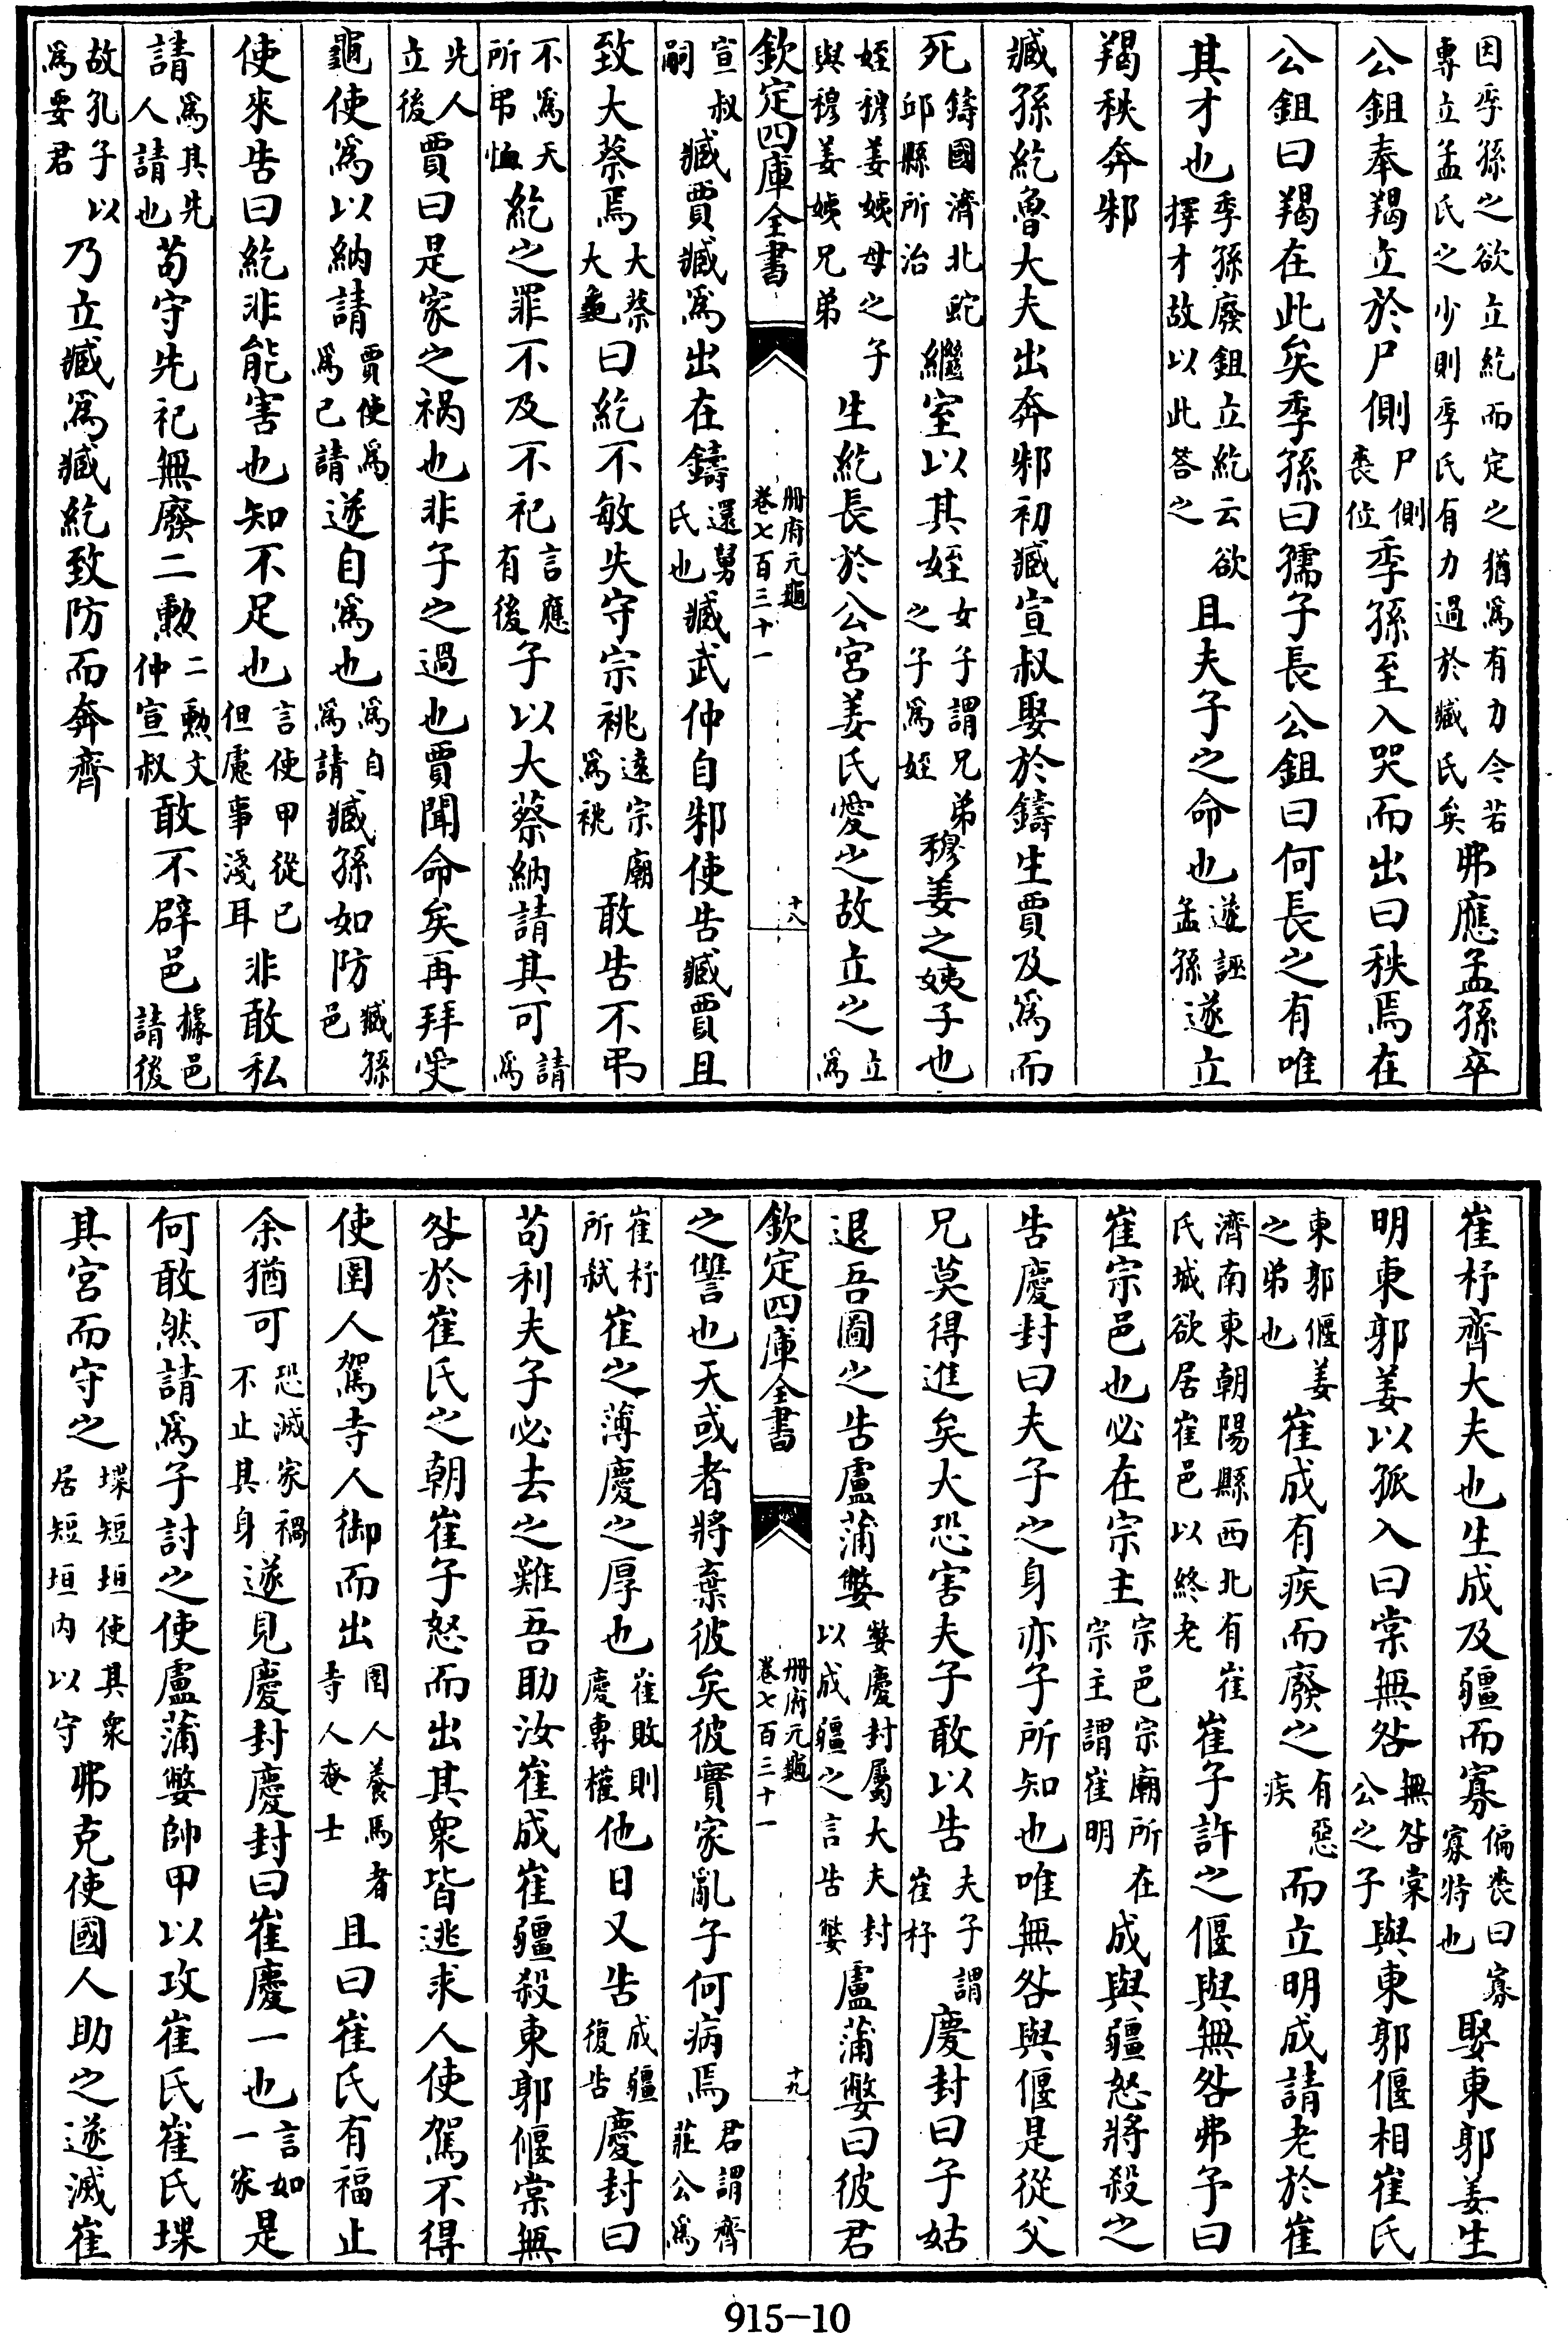 因季孫之欲立紇而定之猶為有力今若
専立孟氏之少則季氏有力過於臧氏矣弗應孟孫卒
公鉏奉羯立於戸側戸側喪位季孫至入哭而出曰秩焉在
公鉏曰羯在此矣季孫曰孺子長公鉏曰何長之有唯
其才也季孫廢鉏立紇云欲擇才故以此答之且夫子之命也遂誣孟孫遂立
羯秩奔邾
臧孫紇魯大夫出奔邾初臧宣叔娶於鑄生賈及為而
死鑄國濟北蛇邱縣所治繼室以其姪女子謂兄弟之子為姪穆姜之姨子也
姪穆姜姨母之子與穆姜姨兄弟生紇長於公宮姜氏愛之故立之立為
欽定四庫全書
冊府元龜
卷七百三十一
十八
宣叔嗣臧賈臧為出在鑄還舅氏也臧武仲自邾使告臧賈且
致大蔡焉大蔡大龜曰紇不敏失守宗祧遠宗廟為祧敢告不弔
不為天所弔恤紇之罪不及不祀言應有後子以大蔡納請其可請為
先人立後賈曰是家之禍也非子之過也賈聞命矣再拜受
龜使為以納請賈使為為己請遂自為也為自為請臧孫如防臧孫邑
使來告曰紇非能害也知不足也言使甲從己但慮事淺耳非敢私
請為其先人請也苟守先祀無廢二勲二勲文仲宣叔敢不辟邑據邑請後
故孔子以為要君乃立臧為臧紇致防而奔齊
崔杼齊大夫也生成及疆而寡偏喪曰寡寡特也娶東郭姜生
明東郭姜以孤入曰棠無咎無咎棠公之子與東郭偃相崔氏
東郭偃姜之弟也崔成有疾而廢之有惡疾而立明成請老於崔
濟南東朝陽縣西北有崔氏城欲居崔邑以終老崔子許之偃與無咎弗予曰
崔宗邑也必在宗主宗邑宗廟所在宗主謂崔明成與疆怒將殺之
告慶封曰夫子之身亦子所知也唯無咎與偃是從父
兄莫得進矣大恐害夫子敢以告夫子謂崔杼慶封曰子姑
退吾圖之告盧蒲嫳嫳慶封屬大夫封以成疆之言告嫳盧蒲嫳曰彼君
欽定四庫全書
冊府元龜
卷七百三十一
十九
之讐也天或者將棄彼矣彼實家亂子何病焉君謂齊莊公為
崔杼所弒崔之薄慶之厚也崔敗則慶専權他日又告成疆復告慶封曰
苟利夫子必去之難吾助汝崔成崔疆殺東郭偃棠無
咎於崔氏之朝崔子怒而出其衆皆逃求人使駕不得
使圉人駕寺人御而出圉人養馬者寺人奄士且曰崔氏有福止
余猶可恐滅家禍不止其身遂見慶封慶封曰崔慶一也言如一家是
何敢然請為子討之使盧蒲嫳帥甲以攻崔氏崔氏堞
其宮而守之堞短垣使其衆居短垣内以守弗克使國人助之遂滅崔
915-10